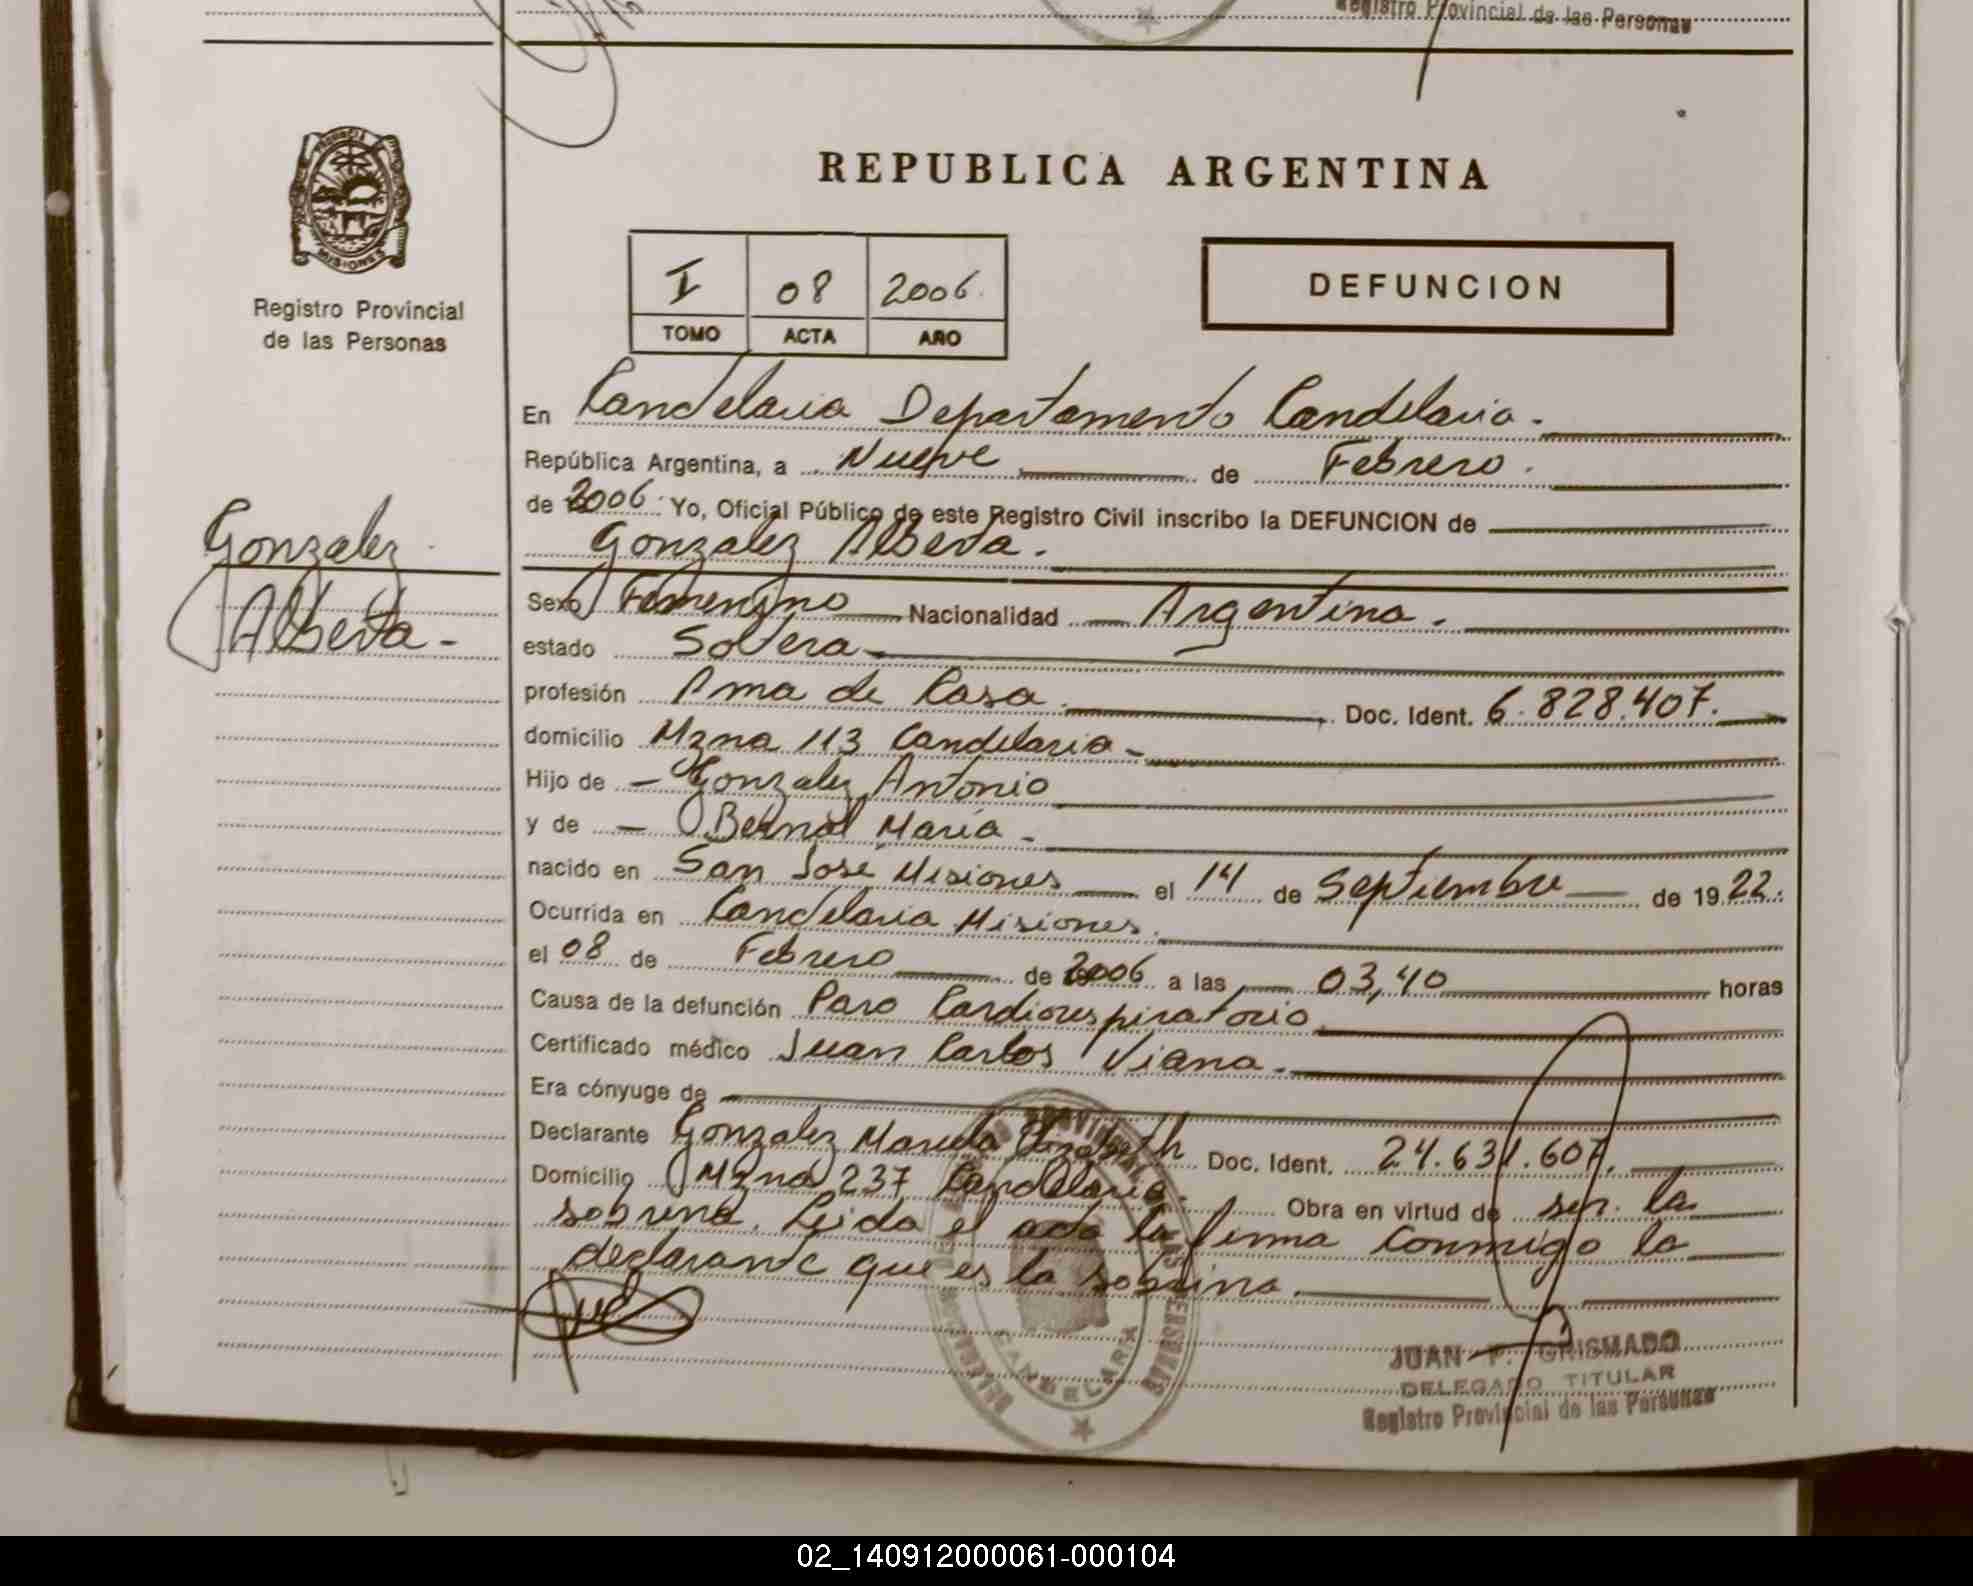 Registro Provincial de las Personas
PROVINCIA
MISIONES
Registro Provincial
de las Personas
REPUBLICA ARGENTINA
I 08 2006.
TOMO ACTA AÑO
DEFUNCION
En Candelaria Departamento Candelaria.
República Argentina, a Nueve de Febrero.
de 2006. Yo, Oficial Público de este Registro Civil inscribo la DEFUNCION de
Gonzalez Alberta.
Gonzalez
Alberta-
Sexo Femenino Nacionalidad Argentina.
estado Soltera
profesión Ama de Casa. Doc. Ident. 6.828.407.
domicilio Mzna 113 Candelaria-
Hijo de - Gonzalez Antonio
y de - Bernal Maria-
nacido en San José Misiones el 14 de Septiembre de 1922.
Ocurrida en Candelaria Misiones.
el 08 de Febrero de 2006 a las 03,40 horas
Causa de la defunción Paro Cardiorespiratorio
Certificado médico Juan Carlos Viana.
Era cónyuge de
Declarante Gonzalez Marcela Elizabeth Doc. Ident. 24.631.607.
Domicilio Mzna 237 Candelaria. Obra en virtud de ser la
sobrina. Leida el acta la firma conmigo la
declarante que es la sobrina.
CANDELARIA
JUAN F. GRISMADO
DELEGADO TITULAR
Registro Provincial de las Personas
02_140912000061-000104